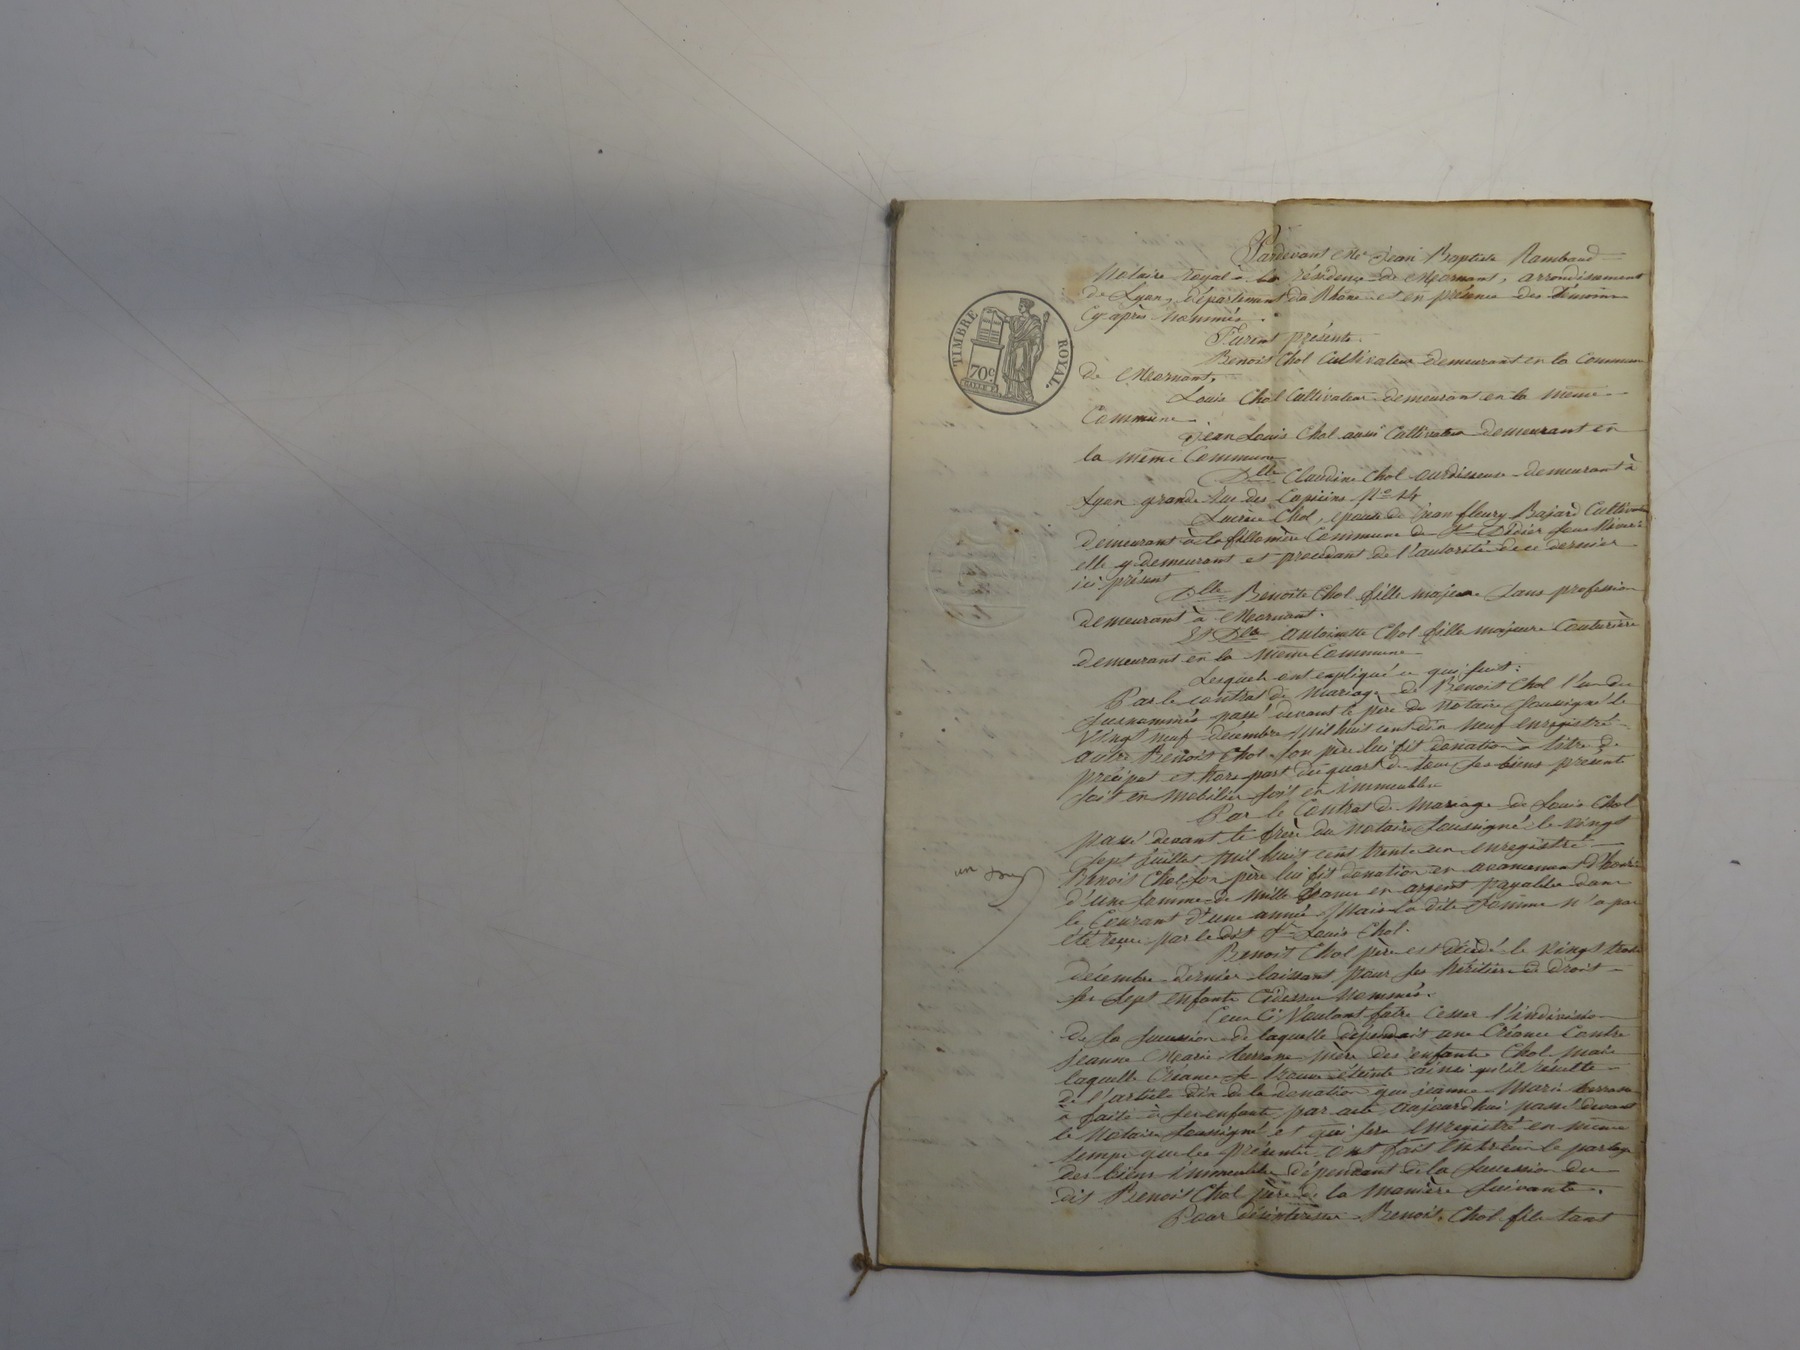 TIMBRE ROYAL.
70c
Pardevant Me Jean Baptiste Rambaud
Notaire royal à la résidence de Mornant, arrondissement
de Lyon, département du Rhône et en présence des témoins
cy après nommés.
Furent présents
Benoit Chol Cultivateur demeurant en la Commune
de Mornant,
Louis Chol Cultivateur demeurant en la même
Commune
Jean Louis Chol aussi Cultivateur demeurant en
la même Commune
Dlle Claudine Chol ourdisseuse demeurant à
Lyon grande rue des Capucins No 14
Lucrèce Chol, épouse de Jean fleury Bajard Cultivateur
demeurant à la fillonière Commune de St Didier sous Riverie
elle y demeurant et procédant de l'autorité de ce dernier
ici présent
Dlle Benoite Chol fille majeure sans profession
demeurant à Mornant.
Et Dlle antoinette Chol fille majeure Couturière
demeurant en la même Commune
Lesquels ont expliqué ce qui suit:
Par le contrat de mariage de Benoit Chol l'un des
susnommés passé devant le père du notaire soussigné le
vingt neuf décembre mil huit cent dix neuf enregistré
autre Benoit Chol son père lui fit donation à titre de
préciput et hors part du quart de tous ses biens présents
soit en mobilier soit en immeubles
Par le Contrat de mariage de Louis Chol
passé devant le frère du notaire soussigné le vingt
sept juillet mil huit cent trente un enregistré
Benoit Chol son père lui fit donation en avancement d'hoirie
d'une somme de mille francs en argent payable dans
le Courant d'une année. Mais la dite somme n'a pas
été reçue par le dit Sr Louis Chol.
Benoit Chol père est décédé le vingt trois
décembre dernier laissant pour ses héritiers de droit
ses sept enfants cidessus nommés.
Ceux Ci Voulant faire cesser l'indivision
de sa succession de laquelle dépendait une Créance Contre
jeanne Marie terrasse mère des enfants Chol mais
laquelle Créance se trouve éteinte ainsi qu'il résulte
de l'article dix de la donation que jeanne Marie terrasse
à faite à ses enfants par acte aujourd'hui passé devant
le Notaire soussigné et qui sera enregistré en même
temps que les présentes, ont fait entr'eux le partage
des biens immeubles dépendant de la succession du
dit Benoit Chol père de la manière suivante.
Pour désintéresser Benoit Chol fils tant